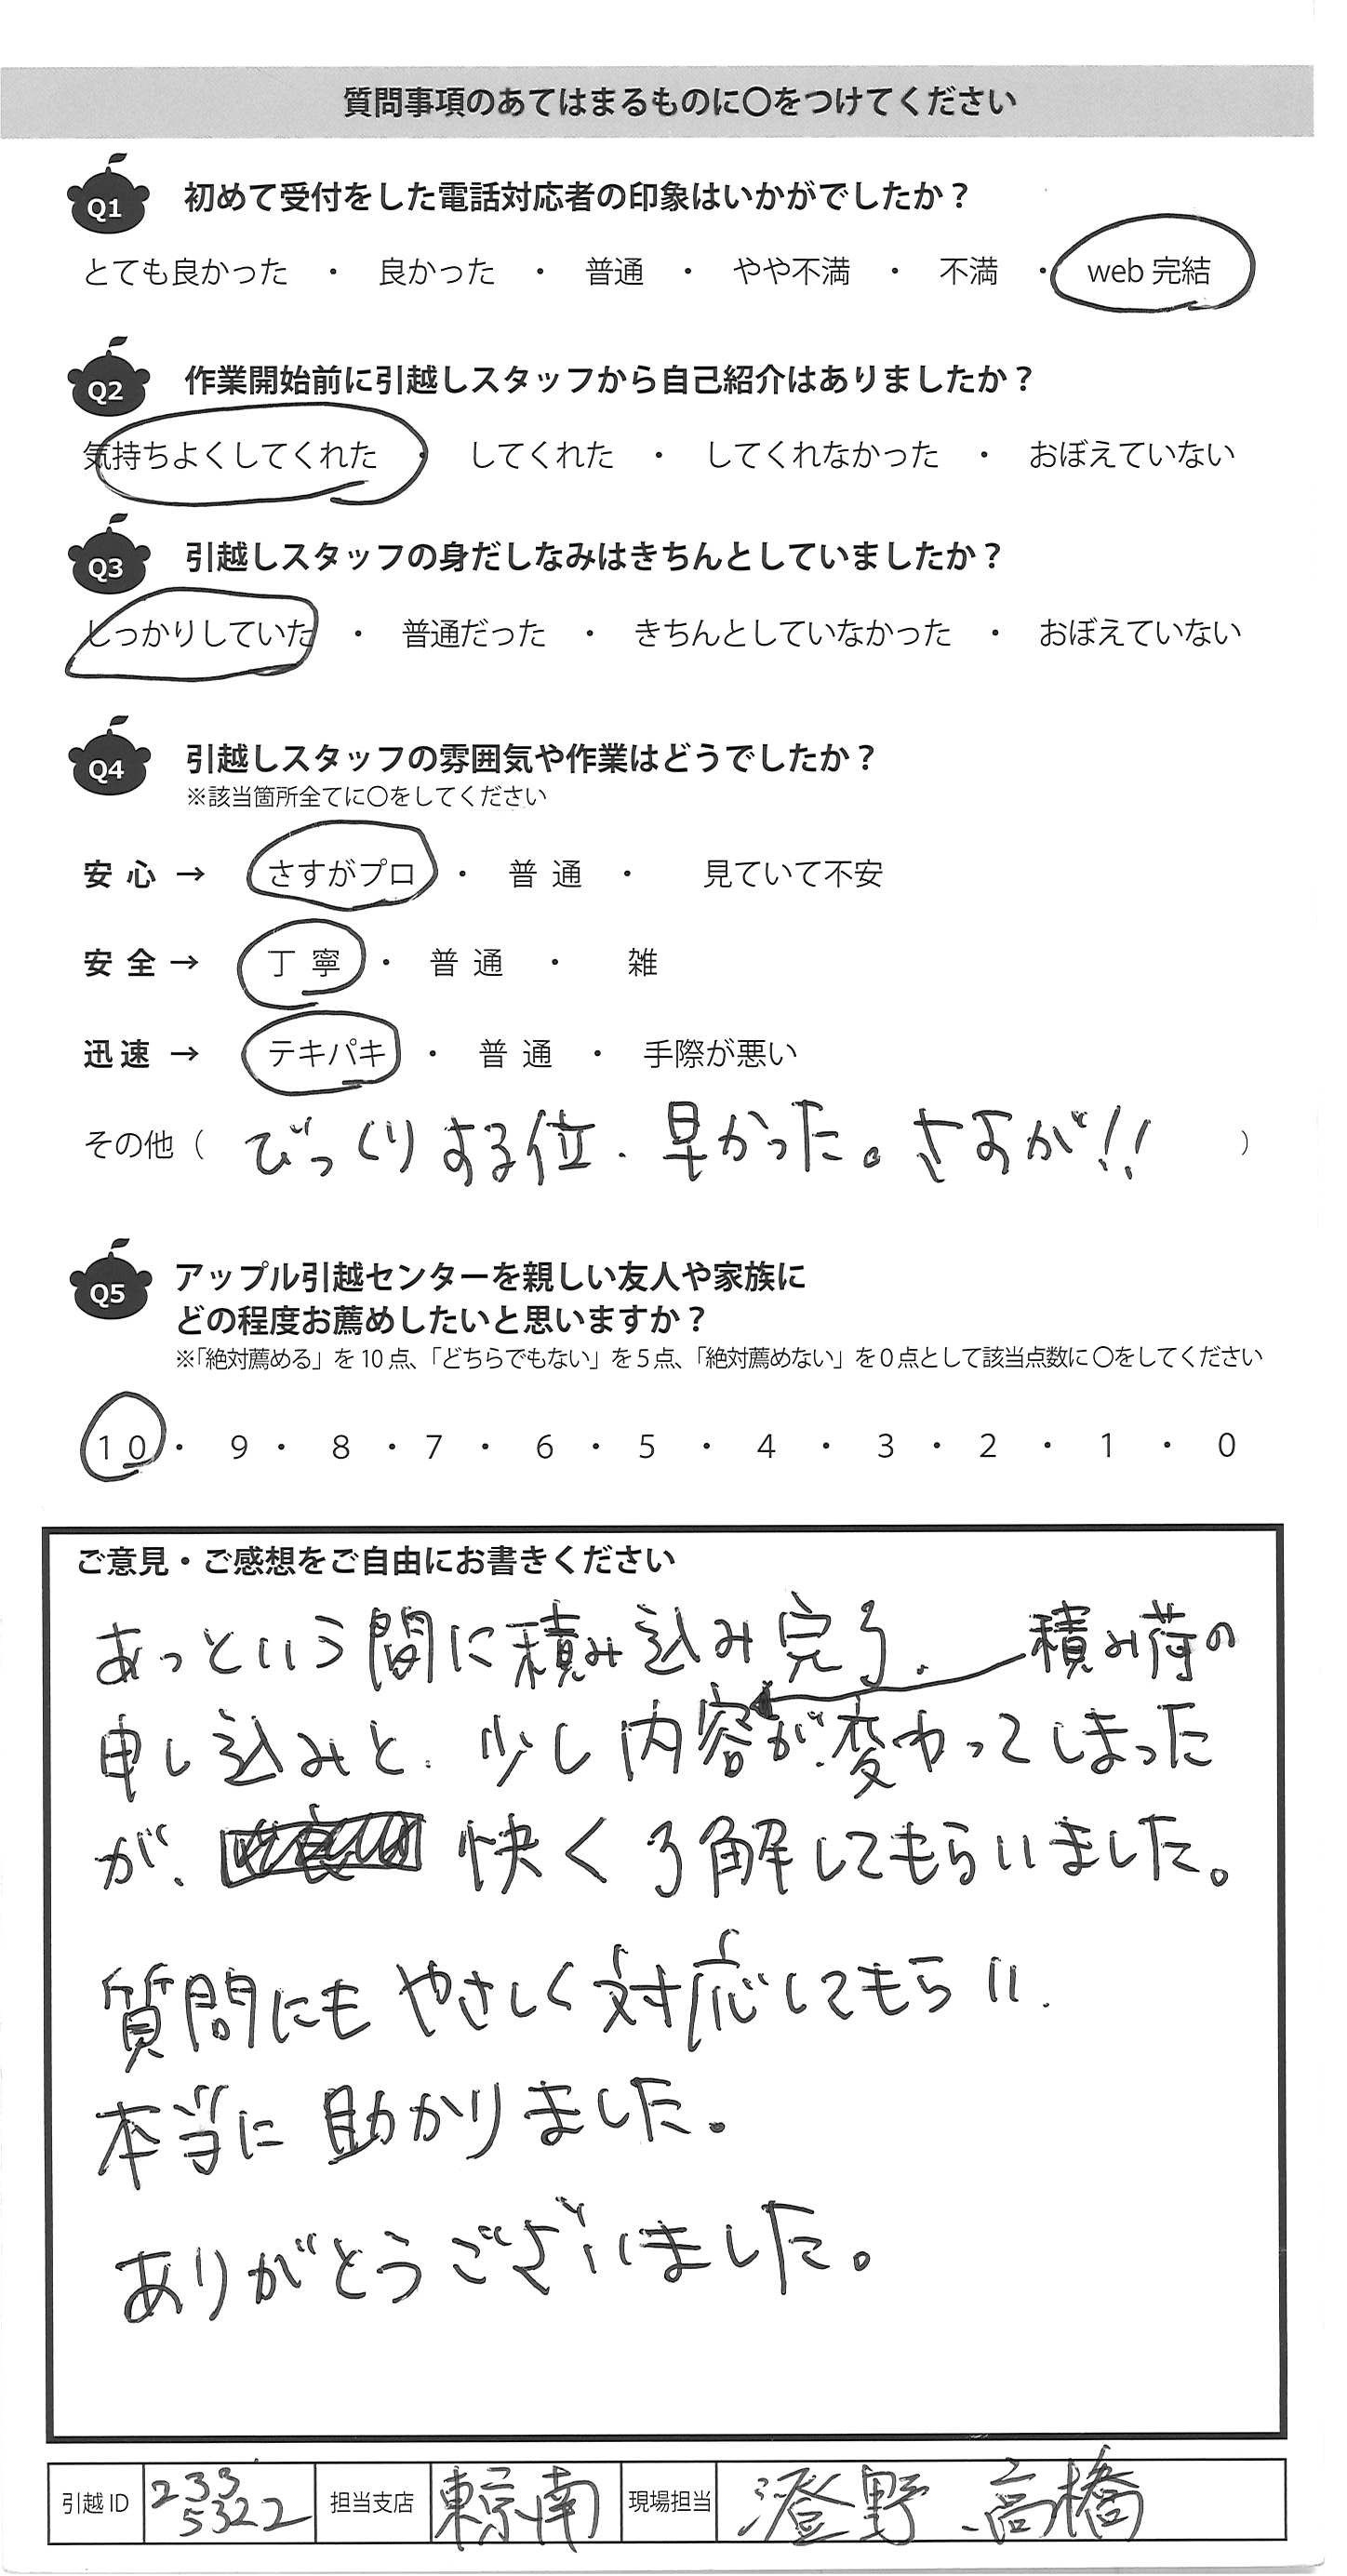 質問事項のあてはまるものに〇をつけてください
Q1 初めて受付をした電話対応者の印象はいかがでしたか？
とても良かった ・ 良かった ・ 普通 ・ やや不満 ・ 不満 ・ web 完結
Q2 作業開始前に引越しスタッフから自己紹介はありましたか？
気持ちよくしてくれた ・ してくれた ・ してくれなかった ・ おぼえていない
Q3 引越しスタッフの身だしなみはきちんとしていましたか？
しっかりしていた ・ 普通だった ・ きちんとしていなかった ・ おぼえていない
Q4 引越しスタッフの雰囲気や作業はどうでしたか？
※該当箇所全てに〇をしてください
安心 → さすがプロ ・ 普通 ・ 見ていて不安
安全 → 丁寧 ・ 普通 ・ 雑
迅速 → テキパキ ・ 普通 ・ 手際が悪い
その他（ びっくりする位、早かった。さすが!! ）
Q5 アップル引越センターを親しい友人や家族に
どの程度お薦めしたいと思いますか？
※「絶対薦める」を10点、「どちらでもない」を5点、「絶対薦めない」を0点として該当点数に〇をしてください
10 ・ 9 ・ 8 ・ 7 ・ 6 ・ 5 ・ 4 ・ 3 ・ 2 ・ 1 ・ 0
ご意見・ご感想をご自由にお書きください
あっという間に積み込み完了、積み荷の
申し込みと、少し内容が変わってしまった
が、快く了解してもらいました。
質問にもやさしく対応してもらい、
本当に助かりました。
ありがとうございました。
引越ID 233 5322 担当支店 東京南 現場担当 澄野、高橋